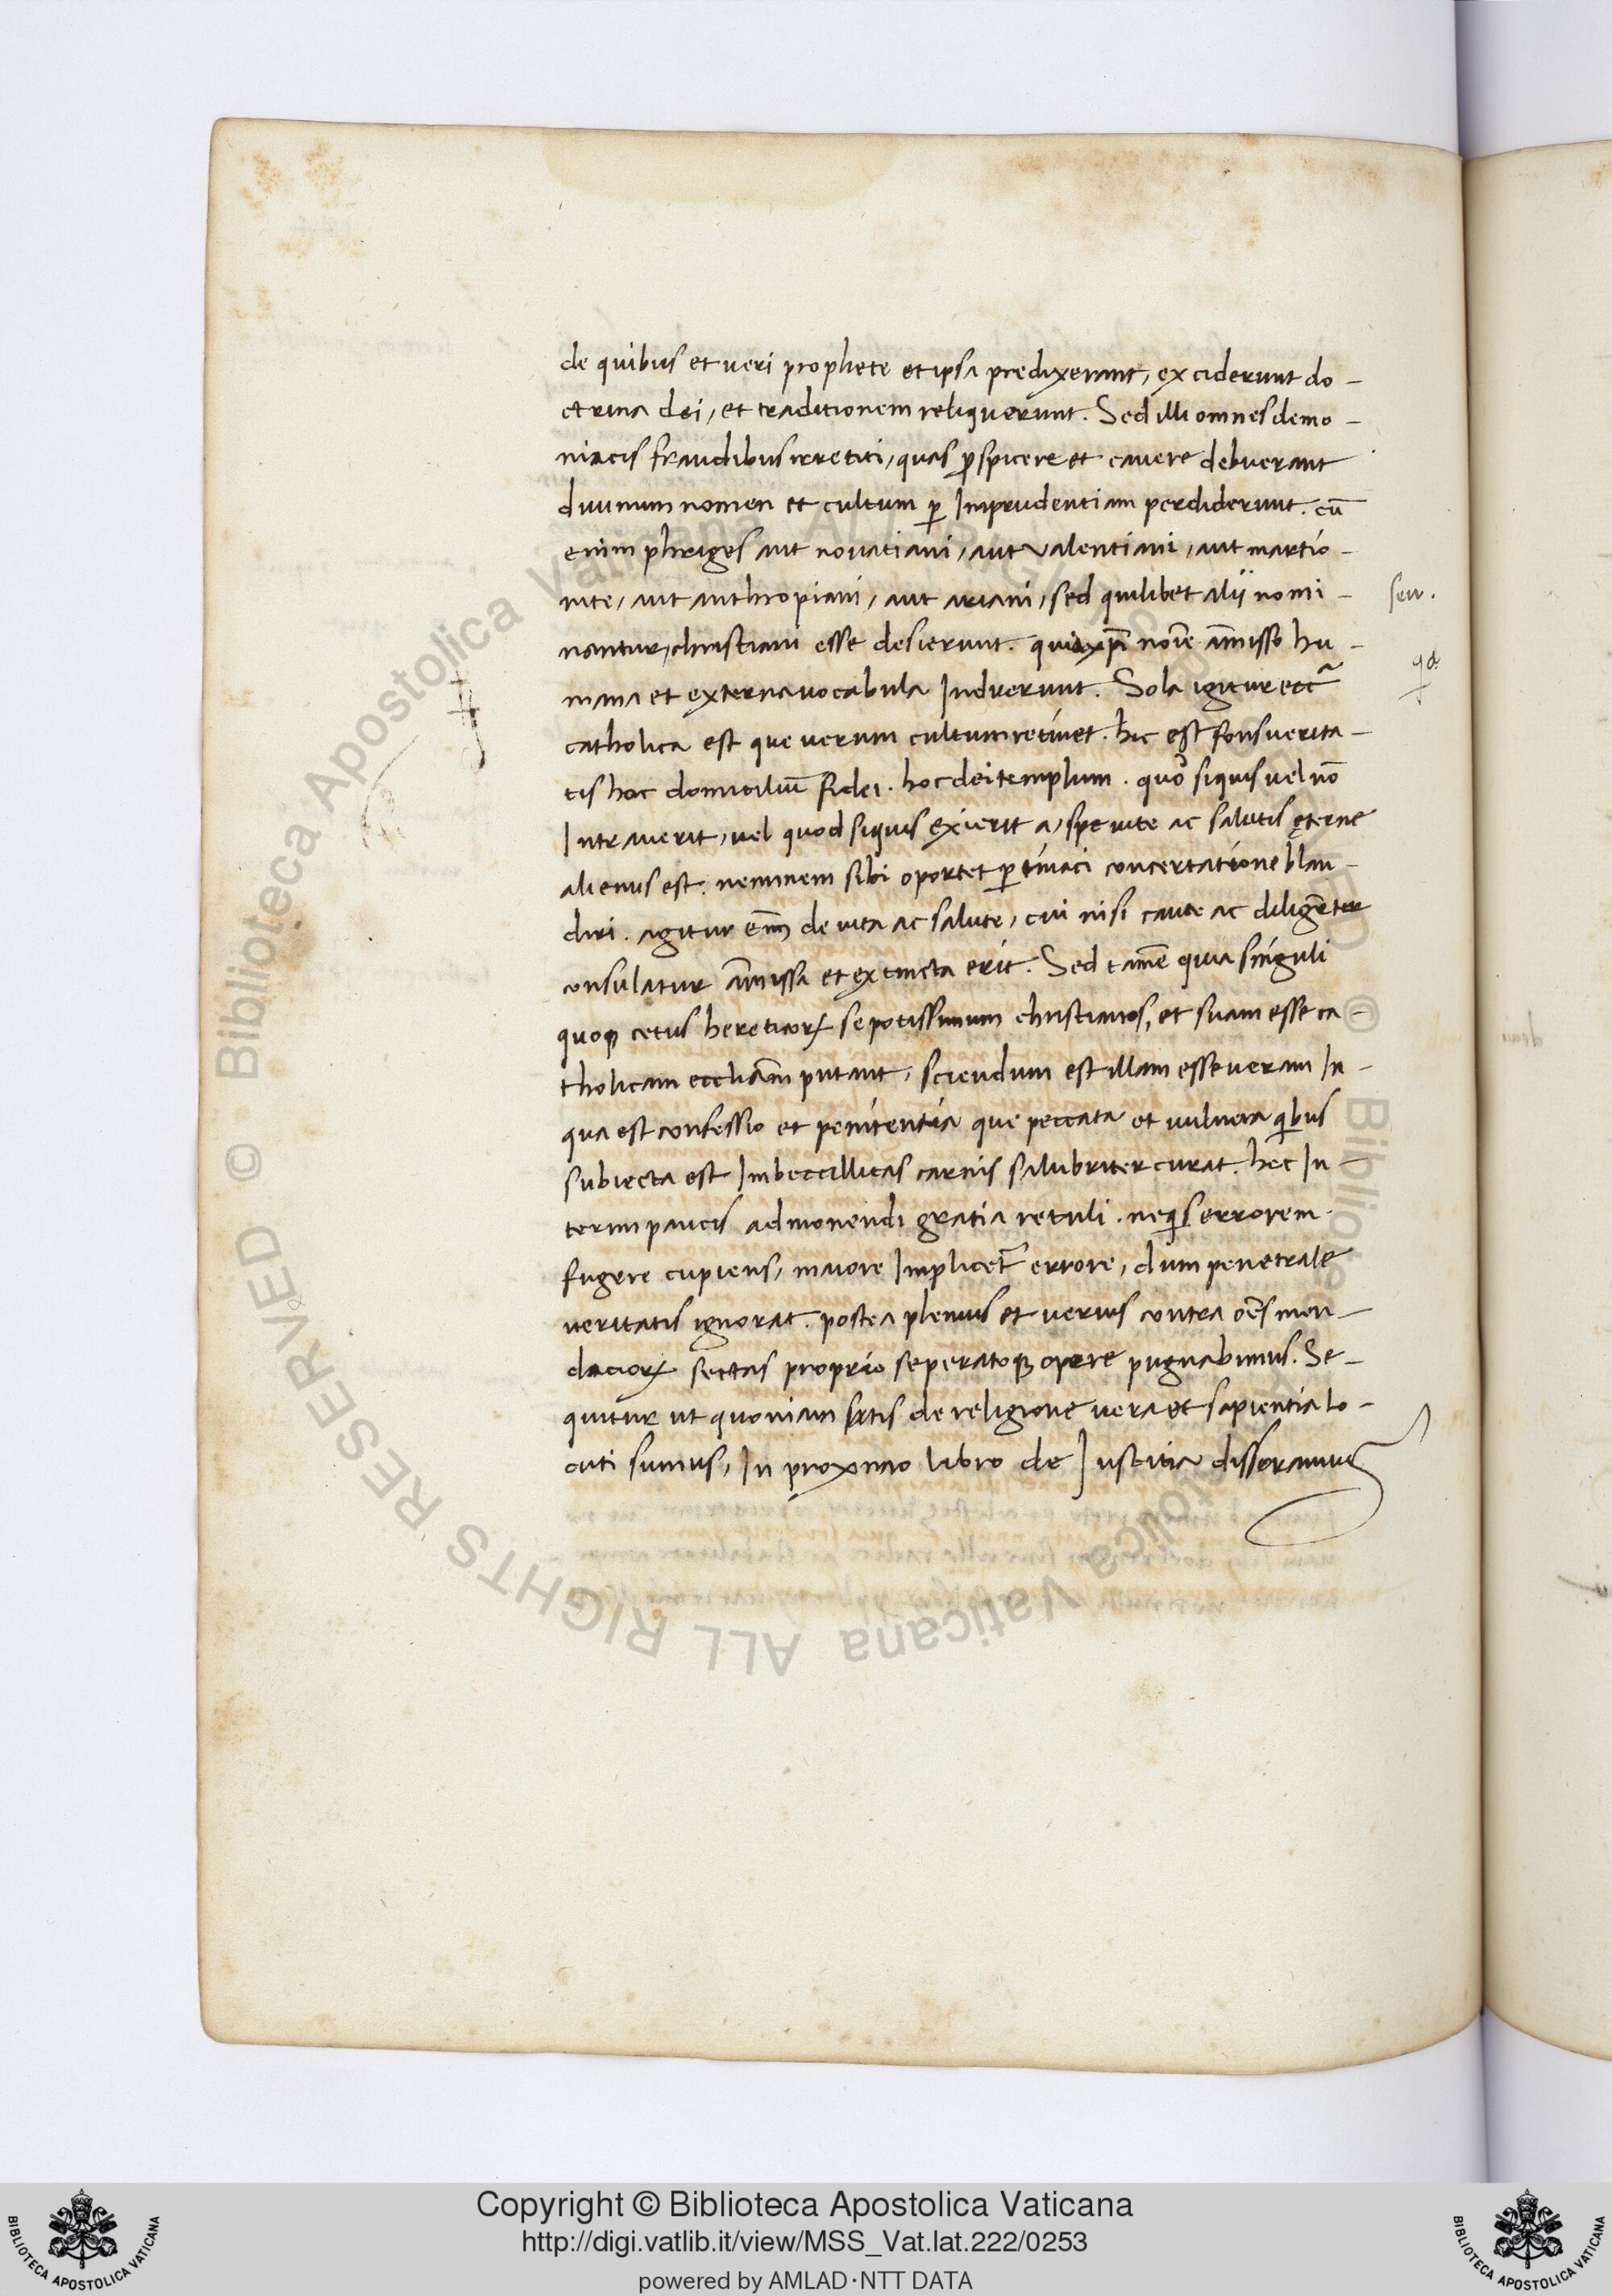 de quibus et veri prophete et ipsa predixerant, exciderunt do-
ctrina dei, et traditionem reliquerunt. Sed illi omnes demo-
niacis fraudibus irretiti, quas ꝓspicere et cauere debuerant
diuinum nomen et cultum ꝑ Imprudentiam perdiderunt. cū
enim phriges aut nouatiani, aut valentiani, aut martio-
nite, aut anthropiani, aut ariani, sed quilibet alij nomi-
seu.
nantur, christiani esse desierunt. quia xp̄i noīe am̄isso hu-
mana et externa uocabula Induerunt. Sola igitur eccᷓ
qd
catholica est que uerum cultum retinet. hic est fons uerita-
tis hoc domicilium̄ fidei. hoc dei templum. quo siquis uel nō
Intrauerit, uel quod siquis exierit a, spe uite ac salutis ęterne
alienus est. neminem sibi oportet ꝑtinaci concertatione blan-
diri. agitur em̄ de uita ac salute, cui nisi caute ac diligēter
consulatur am̄issa et extincta erit. Sed tamē quia singuli
quoqꝫ cetus hereticoꝝ se potissimum christianos, et suam esse ca-
tholicam eccliam̄ putant, sciendum est illam esse ueram In-
qua est confessio et penitentia que peccata et uulnera qibus
subiecta est Imbeccillitas carnis salubriter curat. hec In-
terim paucis admonendi gratia retuli. neqis errorem
fugere cupiens, maiore Implicet᷑ errore, dum penetrale
ueritatis ignorat. postea plenius et uerius contra oēs men-
dacioꝝ sectas proprio seperatoqꝫ opere pugnabimus. Se-
quitur ut quoniam satis de religione uera et sapientia lo-
cuti sumus, In proximo libro de Iustitia disseramus
Copyright © Biblioteca Apostolica Vaticana
http://digi.vatlib.it/view/MSS_Vat.lat.222/0253
powered by AMLAD·NTT DATA
BIBLIOTECA APOSTOLICA VATICANA
BIBLIOTECA APOSTOLICA VATICANA
© Biblioteca Apostolica Vaticana ALL RIGHTS RESERVED